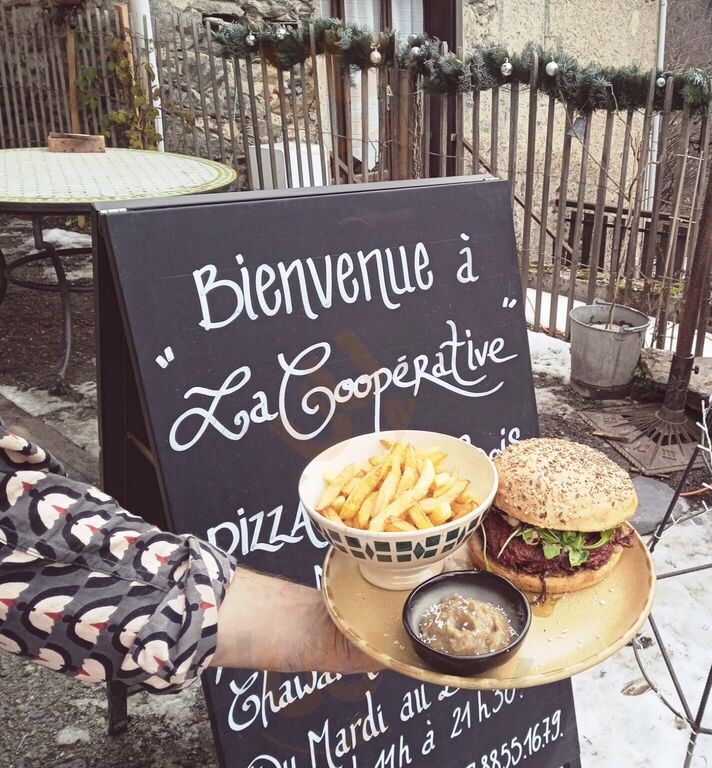 Bienvenue à
" La Coopérative "
ois
PIZZA
Chawa
Du Mardi au
11h à 21h30.
8855.16.79.